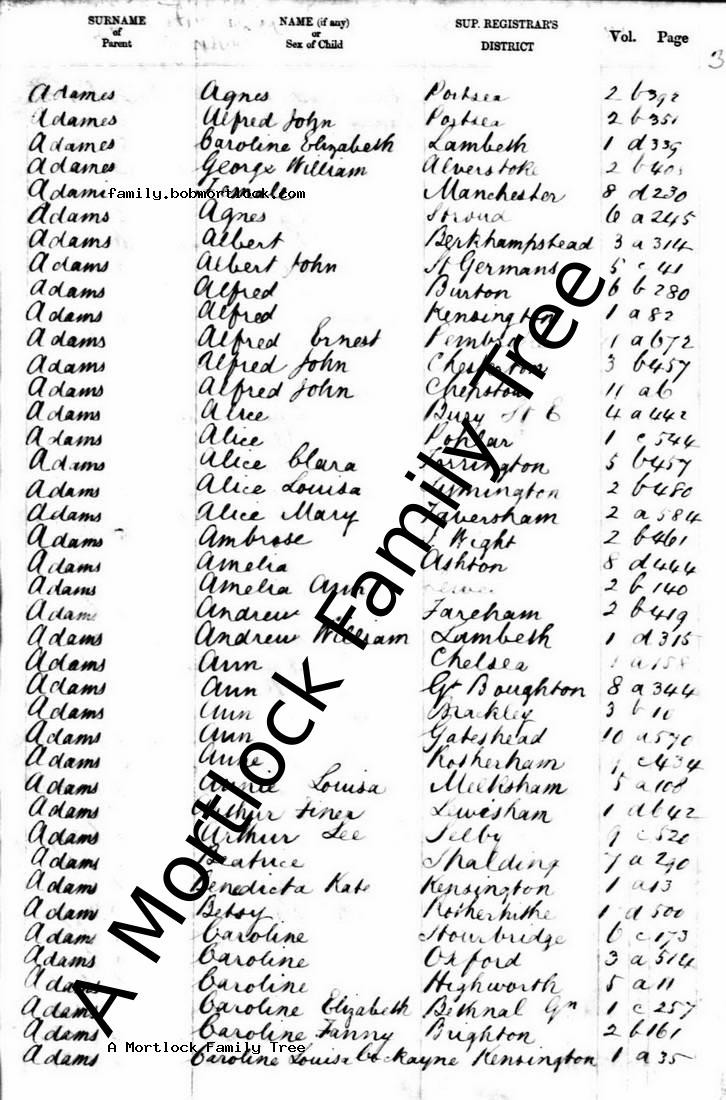 SURNAME of Parent NAME (if any) or Sex of Child SUP. REGISTRAR'S DISTRICT Vol. Page
3
Adames Agnes Portsea 2 b 392
Adames Alfred John Portsea 2 b 351
Adames Caroline Elizabeth Lambeth 1 d 339
Adames George William Alverstoke 2 b
family.bobmortlock.com
Female Manchester 8 d 230
Adams Agnes Stroud 6 a 245
Adams Albert Berkhampstead 3 a 314
Adams Albert John St Germans 5 c 41
Adams Alfred Burton 6 b 280
Adams Alfred Kensington 1 a 82
Adams Alfred Ernest 1 a 672
Adams Alfred John Chesterton 3 b 457
Adams Alfred John Chepstow 11 a 6
Adams Alice Bury St E 4 a 442
Adams Alice Poplar 1 c 544
Adams Alice Clara Torrington 5 b 457
Adams Alice Louisa Lymington 2 b 480
Adams Alice Mary Faversham 2 a 584
Adams Ambrose I Wight 2 b 461
Adams Amelia Ashton 8 d 444
Adams Amelia Ann 2 b 140
Adams Andrew Fareham 2 b 419
Adams Andrew William Lambeth 1 d 315
Adams Ann Chelsea 1 a 158
Adams Ann Gt Boughton 8 a 344
Adams Ann Brackley 3 b 10
Adams Ann Gateshead 10 a 590
Adams Anne Rotherham 9 c 434
Adams Annie Louisa Melksham 5 a 108
Adams Arthur Lewisham 1 d 642
Adams Arthur Lee Selby 9 c 520
Adams Beatrice Spalding 7 a 290
Adams Benedicta Kate Kensington 1 a 13
Adams Betsy Rotherhithe 1 d 500
Adams Caroline Stourbridge 6 c 173
Adams Caroline Oxford 3 a 514
Adams Caroline Highworth 5 a 11
Adams Caroline Elizabeth Bethnal Gn 1 c 257
Adams Caroline Fanny Brighton 2 b 161
A Mortlock Family Tree
Adams Caroline Louisa Cockayne Kensington 1 a 35
A Mortlock Family Tree